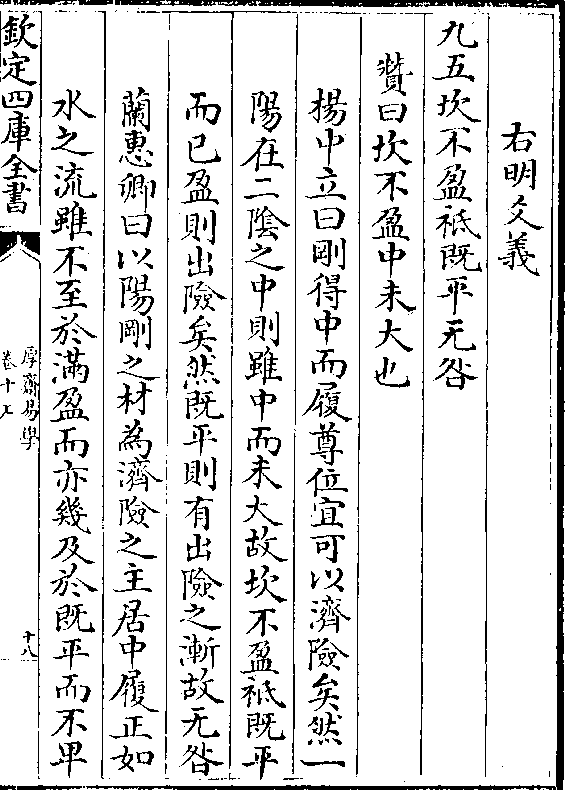 右明爻義
九五坎不盈祗既平无咎
贊曰坎不盈中未大也
楊中立曰剛得中而履尊位宜可以濟險矣然一
陽在二隂之中則雖中而未大故坎不盈祗既平
而已盈則出險矣然既平則有出險之漸故无咎
蘭惠卿曰以陽剛之材為濟險之主居中履正如
水之流雖不至於滿盈而亦幾及於既平而不卑
欽定四庫全書
厚齋易學
卷十七
十八